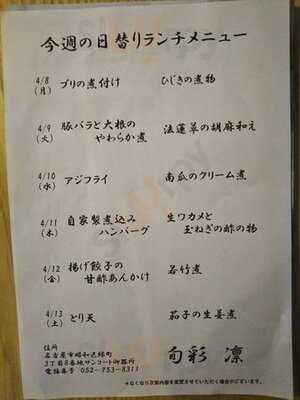 今週の日替りランチメニュー
4/8
(月)
ブリの煮付け
ひじきの煮物
4/9
(火)
豚バラと大根の
やわらか煮
法蓮草の胡麻和え
4/10
(水)
アジフライ
南瓜のクリーム煮
4/11
(木)
自家製煮込み
ハンバーグ
生ワカメと
玉ねぎの酢の物
4/12
(金)
揚げ餃子の
甘酢あんかけ
若竹煮
4/13
(土)
とり天
茄子の生姜煮
住所
名古屋市昭和区緑町
3丁目8番地サンコート御器所
電話番号 052-753-8311
旬彩 凛
*なくなり次第内容を変更させていただく場合がございます。